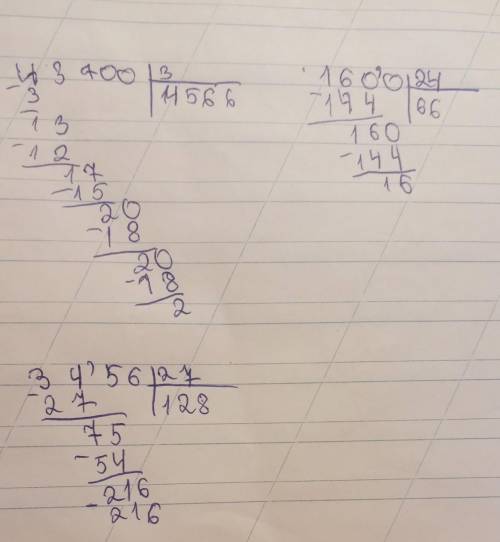 43700 3
-3 14566
13
-12
17
-15
20
-18
20
-18
2
1600 24
-144 66
160
-144
16
3456 27
-27 128
75
-54
-216
216